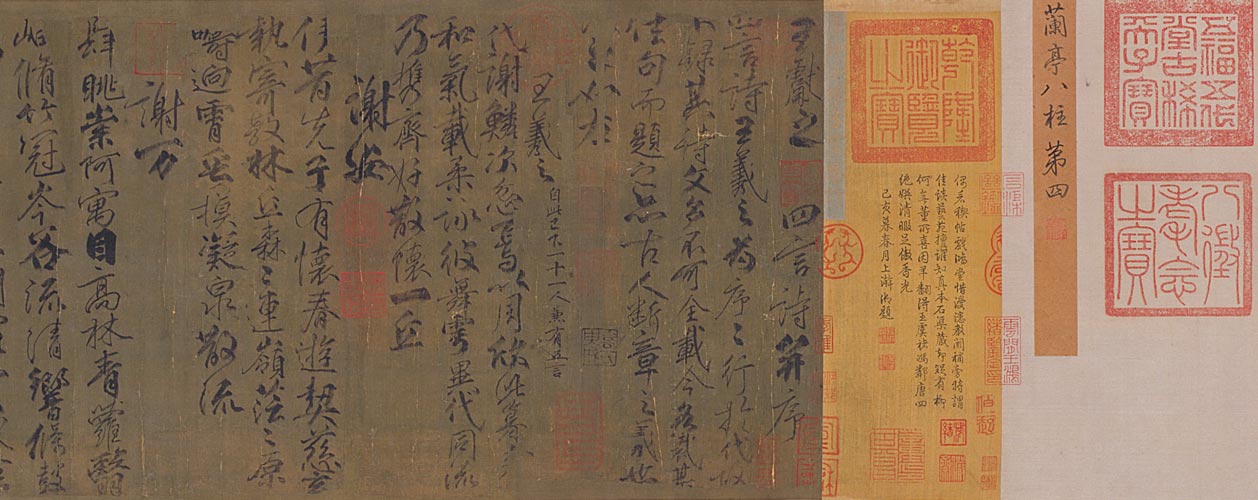 五福五代
堂古稀
天子寶
八徵
耄念
之寶
蘭亭八柱第四
乾隆
御覽
之寶
禊帖戲鴻堂惜漫漶教閒補旁將謂
佳談藝苑擅誰知真本石渠藏却緣有柳
何無董所喜因羊翻得王虞褚馮鄰唐四
絕娛清暇足傲香光
己亥暮春月上澣御題
王獻之四言詩并序
四言詩王羲之為序々行於代故
不錄其詩文多不可全載今各裁其
佳句而題之亦古人斷章之義也
王羲之 自此已下十一人兼有五言
代謝鱗次忽焉以周欣此暮春
和氣載柔詠彼舞雩異代同流
乃攜齊好散懷一丘
謝安
伊昔先子有懷春遊契茲言
執寄敖林丘森々連嶺茫々原
疇迥霄垂霧凝泉散流
謝万
肆眺崇阿寓目高林青蘿翳
岫脩竹冠岑谷流清響條鼓